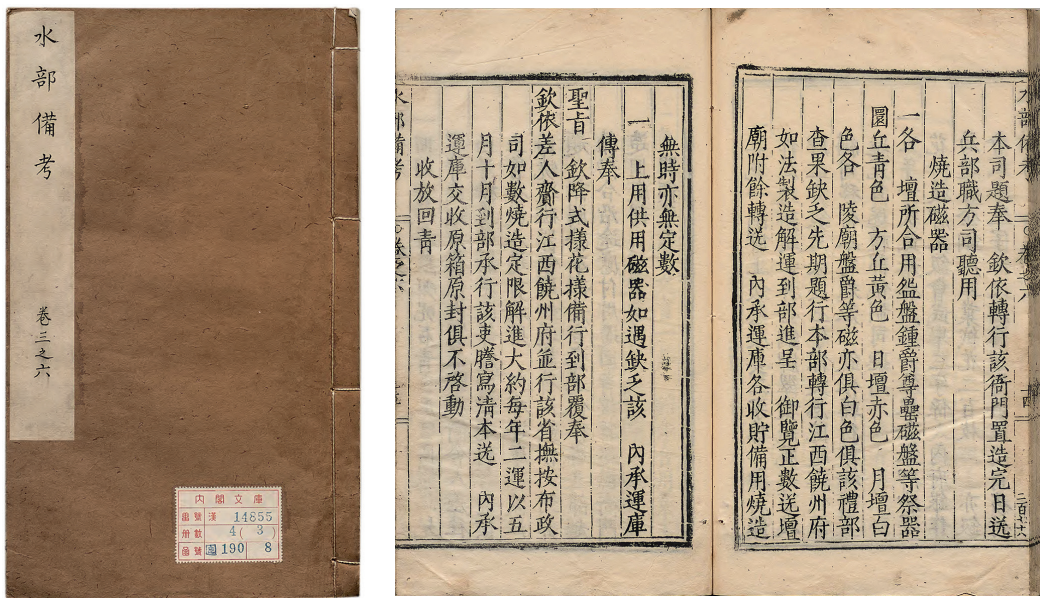 水部備考
卷三之六
內閣文庫
番號 漢 14855
册數 4(3)
函號 190 8
本司題奉 欽依轉行該衙門置造完日送
兵部職方司聽用
燒造磁器
一各 壇所合用㼜盤鍾爵尊罍磁盤等祭器
圜丘青色 方丘黃色 日壇赤色 月壇白
色各 陵廟盤爵等磁亦俱白色俱該禮部
查果缺乏先期題行本部轉行江西饒州府
如法製造解運到部進呈 御覽正數送壇
廟附餘轉送 內承運庫各收貯備用燒造
無時亦無定數
一 上用供用磁器如遇缺乏該 內承運庫
傳奉
聖旨 欽降式樣花樣備行到部覆奉
欽依差人齎行江西饒州府並行該省撫按布政
司如數燒造定限解進大約每年二運以五
月十月到部承行該吏謄寫清本送 內承
運庫交收原箱原封俱不啓動
收放回青
水部備考
卷之六